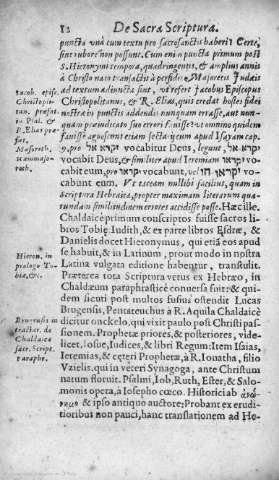 12 De Sacra Scriptura.
puncta unà cum textu pro sacrosanctis haberi? Certe,
sine rubore non possunt. Cum enim puncta primum post
S. Hieronymi tempora, quadringentis, & amplius annis
à Christo nato transactis à perfidis Majoretis Judæis
ad textum adiuncta sint, ut refert Jacobus Episcopus
Christopolitanus, & R. Elias, quis credat hostes fidei
nostræ in addendis punctis nunquam errasse, aut nun-
quam præiudicio suo errori esse?
9. pro יקראו אל vocabitur Deus, legunt, יקרא אל
vocabit Deus, & similiter apud Ieremiam
vocabit eum, pro יקראו vel vo-
cabunt eum. Ut taceam multos facilius, quam in
scriptura Hebræa, propter maximam literarum qua-
rundam similitudinem errores accidisse posse. Hæc ille.
Chaldaicè primum conscriptos fuisse sacros li-
bros Tobiæ, Iudith, & ex parte libros Esdræ, &
Danielis docet Hieronymus, qui etiã eos apud
se habuit, & in Latinum, prout modo in nostra
Latina vulgata editione habentur, transtulit.
Præterea tota Scriptura vetus ex Hebræo, in
Chaldæum paraphrasticè conversa fuit: & qui-
dem sicuti post multos fusius ostendit Lucas
Brugensis, Pentateuchus à R. Aquila Chaldaicè
dicitur onckelo, qui vixit paulo post Christi pas-
sionem. Prophetæ priores, & posteriores, vide-
licet, Iosue, Iudices, & libri Regum: Item Isaias,
Ieremias, & cęteri Prophetæ, à R. Ionatha, filio
Vzielis, qui in veteri Synagoga, ante Christum
natum floruit. Psalmi, Iob, Ruth, Ester, & Salo-
monis opera, à Iosepho cœco. Historici ab
& ipso antiquo auctore: Probant ex erudi-
tioribus non pauci, hanc translationem ad He-
Iacob. episc.
Christopo-
litan. præfat.
in Psal. &
R. Elias præ-
fat.
Masoreth.
Hieron. in
prologo To-
biæ, &c.
Brugensis in
tractat. de
Chaldaica
sacr. Script.
paraphr.